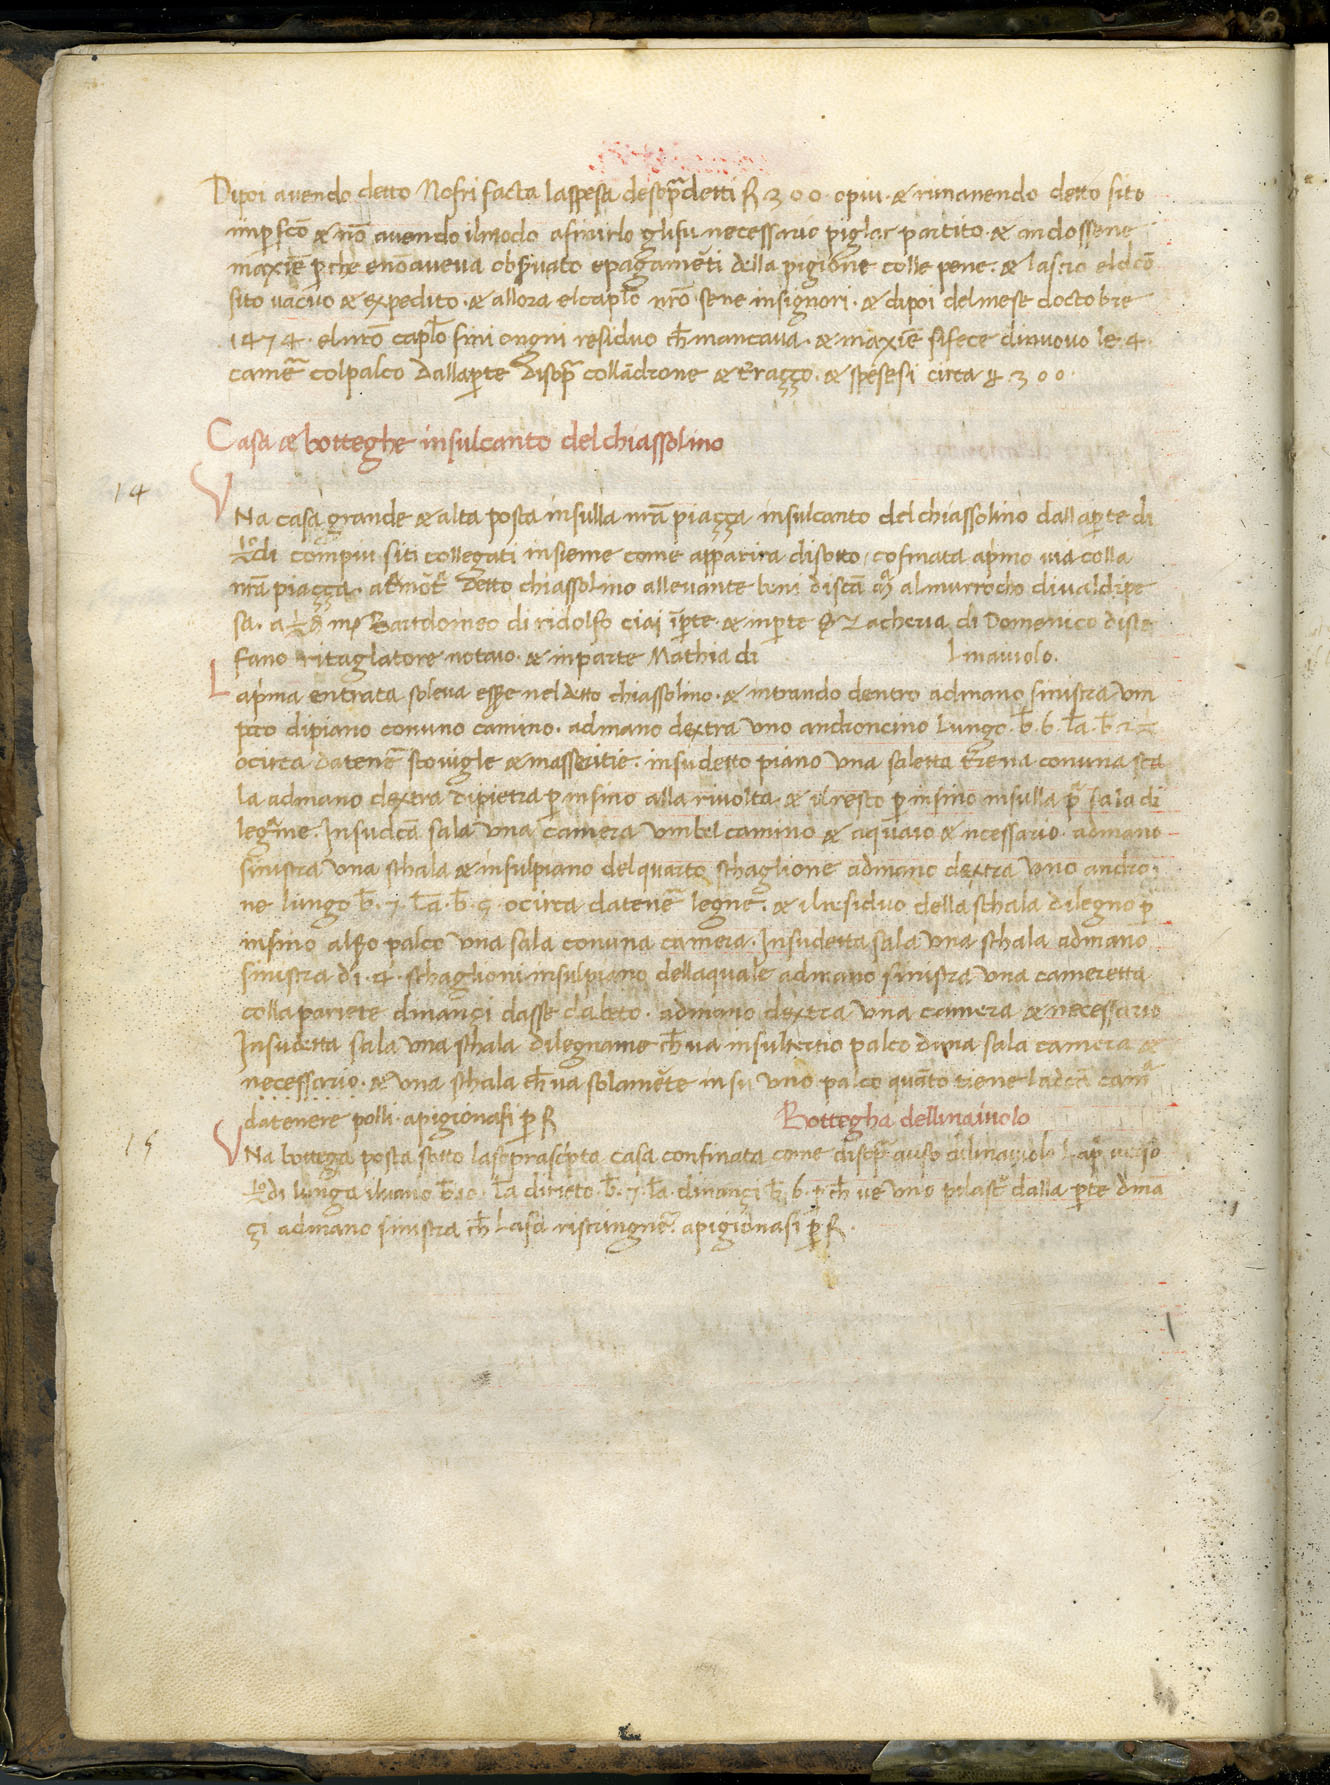 Dipoi avendo detto Nofri facta laspesa desopradetti fl 300 opiu · & rimanendo detto sito
imperfcō & nō avendo ilmodo afinirlo glifu necessario piglar partito · & andossene
maxīe perche enōaveva observato epagamēti della pigione colle pene · & lascio eldcō
sito vacuo & expedito · & allora elcaplo nrō sene insignori · & dipoi delmese doctobre
1474 · elnrō caplo fini ongni residuo ch̄ mancava · & maxīe sifece dinuovo le · 4 ·
camer colpalco dallaparte disopra collādrone & traççо · & spesesi circa 300
Casa & botteghe insulcanto delchiassolino
14
VNa casa grande & alta posta insulla nrā piaçça insulcanto del chiassolino dallaparte di
di compiu siti collegati insieme come apparira disotto · cofinata aprimo via colla
nrā piaçça · detto chiassolino allevante beni discā al murrocho divaldipe
sa · a Bartolomeo di ridolfo ciai īparte · & inparte Zacheria di Domenico diste
fano ritaglatore notaio · & inparte Mathia di Linaiuolo.
Laprima entrata soleva essere nel detto chiassolino · & intrando dentro admano sinistra um
dipiano conuno camino · admano dextra uno androncino lungo · b̄ · 6 · la · b̄ · 2
ocirca datener stovigle & masseritie · insudetto piano una saletta terrena conuna sca
la admano dextra dipietra per insino alla rivolta · & ilresto per insino insulla pra sala di
legname · Insudcā sala una camera umbel camino & aquaio & necessario · admano
sinistra una schala & insulpiano delquarto schaglione admano dextra uno andro
ne lungo b̄ · 7 · la · b̄ · 5 · ocirca datener legne · & ilresiduo della schala dilegno per
insino palco una sala conuna camera · Insudetta sala una schala admano
sinistra di · 4 · schaglioni insulpiano dellaquale admano sinistra una cameretta
colla pariete dinançi dasse dabeto · admano dextra una camera & necessario
Insudetta sala una schala dilegname ch̄ va insultertio palco duna sala camera &
necessario · & una schala ch̄ va solamēte insu uno palco quāto tiene ladcā camra
datenere polli · apigionasi per fl Bottegha dellinaiuolo
15
VNa bottega posta sotto lasoprascripta casa confinata come disopra auso dilinaiuolo verso
di lunga ilvano b̄ 10 · la dirieto · b̄ · 7 · la · dinançi b̄ 6 · perch̄ ve uno pilastro dalla parte dinā
çi admano sinistra ch̄ lafa ristringner · apigionasi per fl ·